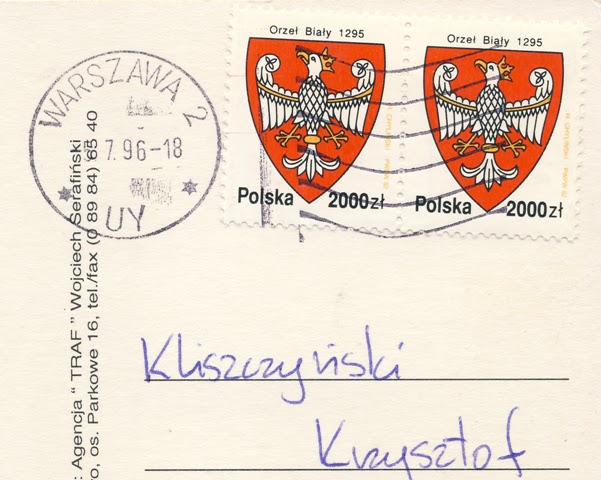 Orzeł Biały 1295
Polska 2000 zł
Orzeł Biały 1295
Polska 2000 zł
WARSZAWA 2
7.96-18
UY
: Agencja “ TRAF ” Wojciech Serafiński
os. Parkowe 16, tel./fax (0 89 84) 65 40
Kliszczyński
Krzysztof